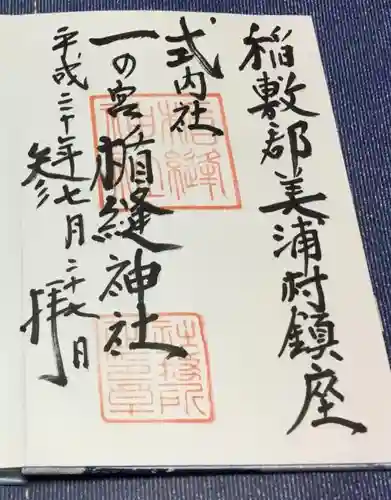 稲敷郡美浦村鎮座
式内社
一の宮楯縫神社
平成二十年七月二十七日
参拝
楯縫神社
社務所